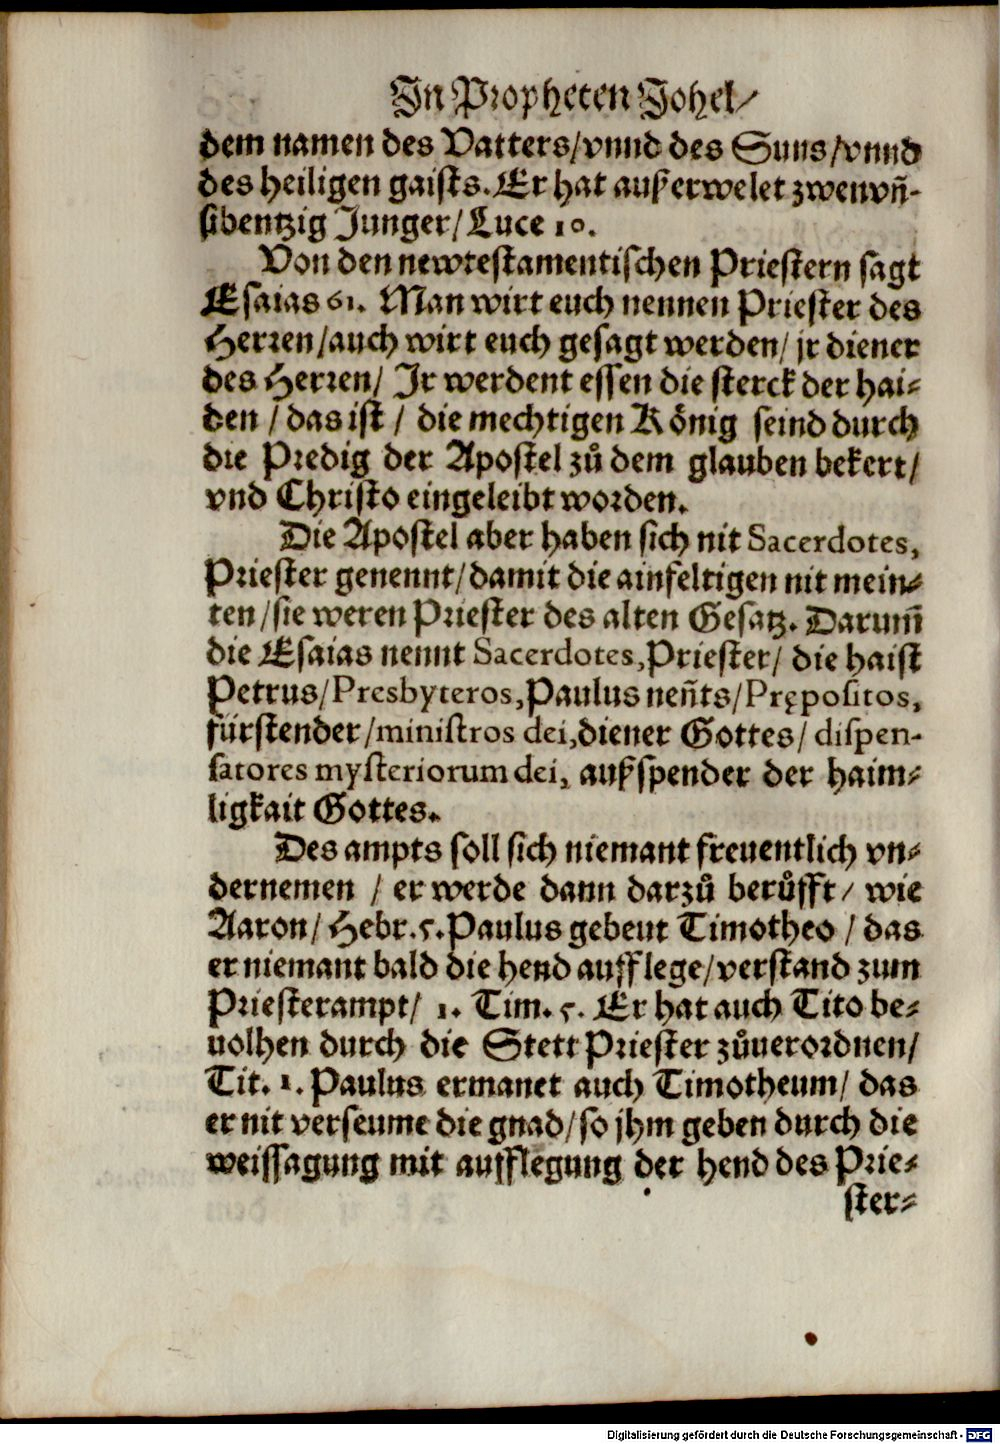 In Propheten Johel/
dem namen des Vatters/vnnd des Suns/vnnd
des heiligen gaists. Er hat außerwelet zwenvñ-
sibentzig Junger/ Luce 10.
Von den newtestamentischen Priestern sagt
Esaias 61. Man wirt euch nennen Priester des
Herren/auch wirt euch gesagt werden/ jr diener
des Herren/ Jr werdent essen die sterck der hai-
den / das ist / die mechtigen König seind durch
die Predig der Apostel zů dem glauben bekert/
vnd Christo eingeleibt worden.
Die Apostel aber haben sich nit Sacerdotes,
Priester genennt/damit die ainfeltigen nit mein-
ten/sie weren Priester des alten Gesatz. Darum̃
die Esaias nennt Sacerdotes, Priester/ die haist
Petrus/Presbyteros, Paulus neñts/Prępositos,
fürstender/ministros dei, diener Gottes/ dispen-
satores mysteriorum dei, außspender der haim-
ligkait Gottes.
Des ampts soll sich niemant freuentlich vn-
dernemen / er werde dann darzů berůfft/ wie
Aaron/ Hebr. 5. Paulus gebeut Timotheo / das
er niemant bald die hend aufflege/verstand zum
Priesterampt/ 1. Tim. 5. Er hat auch Tito be-
uolhen durch die Stett Priester zůuerordnen/
Tit. 1. Paulus ermanet auch Timotheum/ das
er nit verseume die gnad/so jhm geben durch die
weissagung mit aufflegung der hend des Prie-
ster-
Digitalisierung gefördert durch die Deutsche Forschungsgemeinschaft - DFG